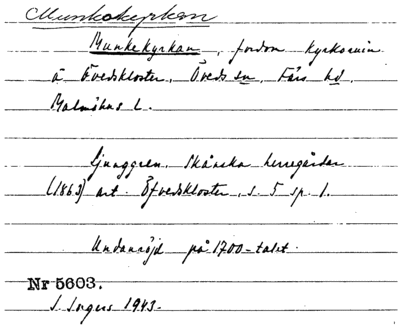 Munkakyrkan
Munkekyrkan, fordom kyrkoruin
å Övedskloster, Öveds sn, Färs hd.
Malmöhus l.
Ljunggren, Skånska herregårdar
(1863) art. Öfvedskloster, s. 5 sp. 1.
Undanröjd på 1700-talet.
Nr 5603.
S. Ingers 1943.